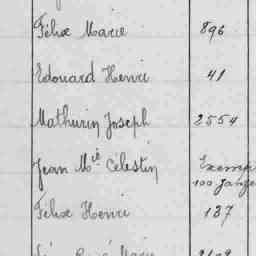 Félix Marie 896
Edouard Henri 41
Mathurin Joseph 2554
Jean Mie Célestin Exemp
100
Félix Henri 187
Marie